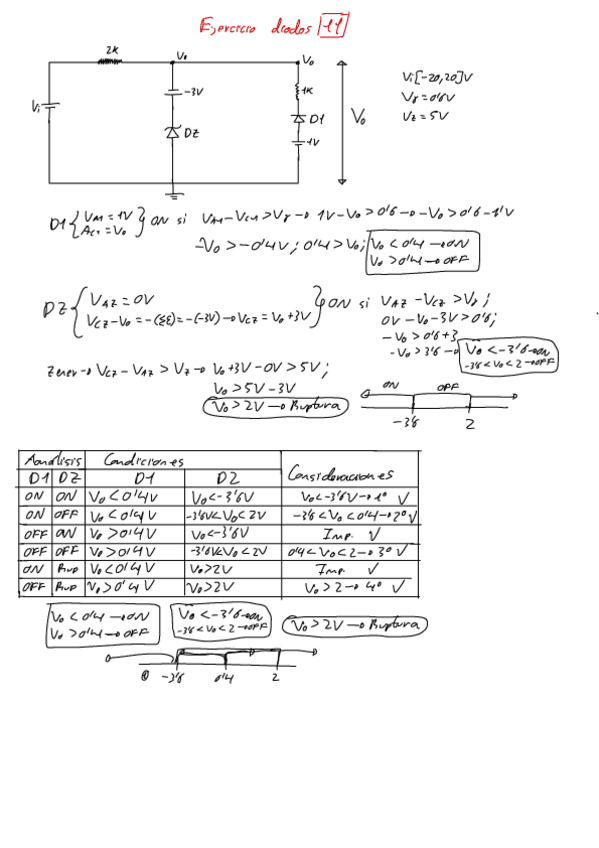 Ejercicio diodos 11
2K
Vo
Vo
-3V
1K
Vi
DZ
D1
1V
Vo
Vi[-20,20]V
Vγ=0'6V
Vz=5V
D1 { VA1=1V AC1=Vo } ON si VA1-VC1>Vγ→ 1V-Vo>0'6→-Vo>0'6-1V
-Vo>-0'4V; 0'4>Vo; Vo<0'4→ON
Vo>0'4→OFF
DZ { VAZ=0V
VCZ-Vo=-(ΣE)=-(-3V)→VCZ=Vo+3V } ON si VAZ-VCZ>Vγ;
0V-Vo-3V>0'6;
-Vo>0'6+3
-Vo>3'6→ Vo<-3'6→ON
-3'6<Vo<2→OFF
Zener→VCZ-VAZ>VZ→Vo+3V-0V>5V;
Vo>5V-3V
Vo>2V→Ruptura
ON OFF
-3'6 2
Análisis Condiciones Consideraciones
D1 DZ D1 D2
ON ON Vo<0'4V Vo<-3'6V Vo<-3'6V→1º √
ON OFF Vo<0'4V -3'6V<Vo<2V -3'6<Vo<0'4→2º √
OFF ON Vo>0'4V Vo<-3'6V Imp. √
OFF OFF Vo>0'4V -3'6V<Vo<2V 0'4<Vo<2→3º √
ON Rup Vo<0'4V Vo>2V Imp. √
OFF Rup Vo>0'4V Vo>2V Vo>2→4º √
Vo<0'4→ON
Vo>0'4→OFF
Vo<-3'6→ON
-3'6<Vo<2→OFF
Vo>2V→Ruptura
0 -3'6 0'4 2